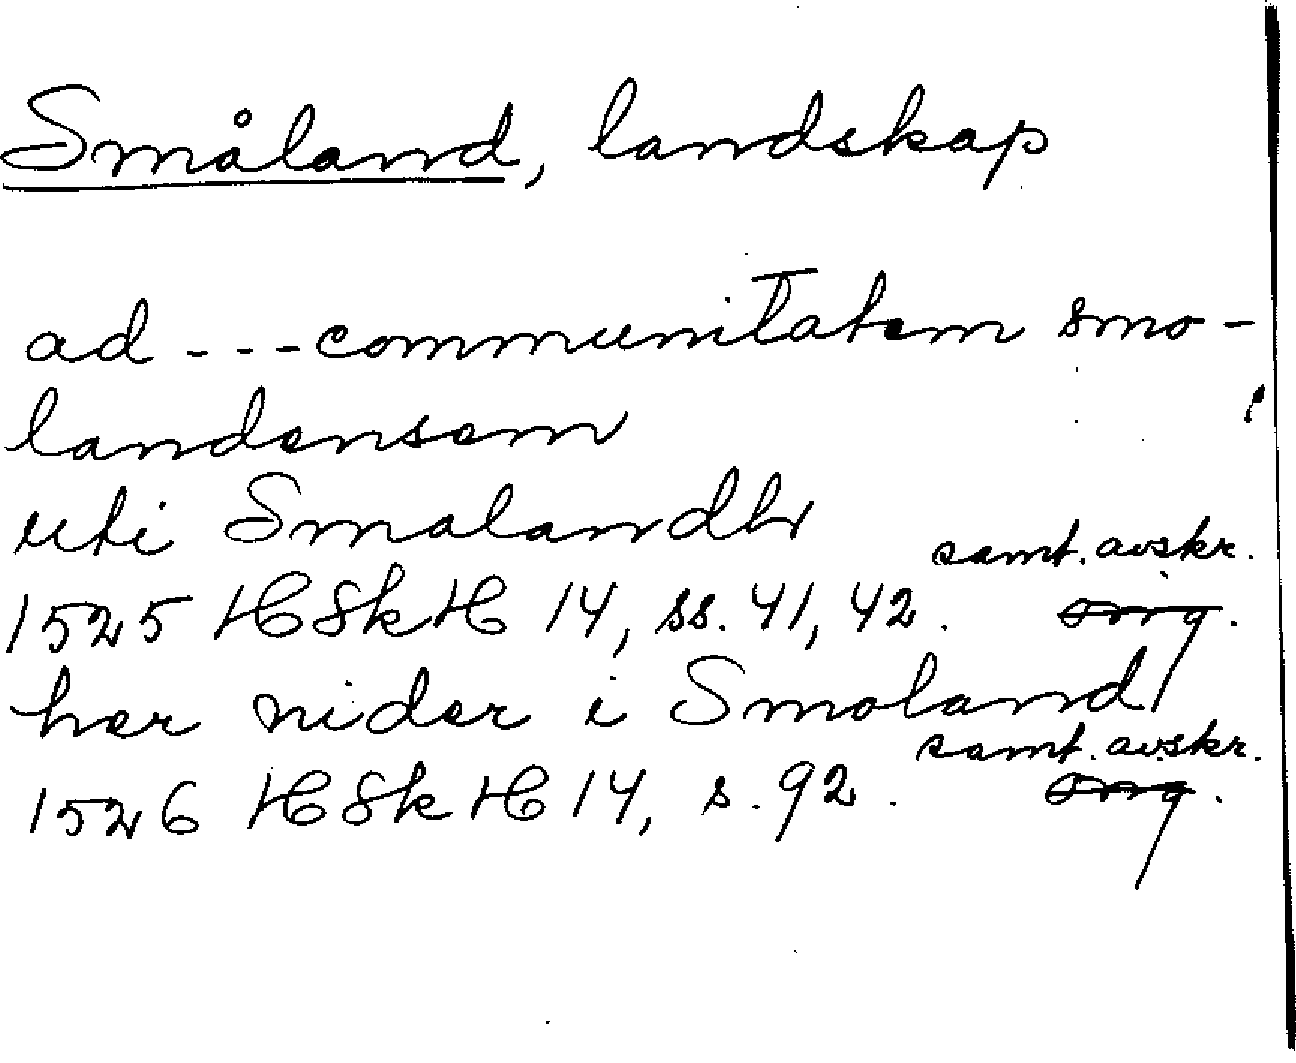 Småland, landskap
ad - - - communitatem smo-
landensem
uti Smalandh
samt. avskr.
1525 HSkH 14, ss. 41, 42. orig.
her nider i Smoland
samt. avskr.
1526 HSkH 14, s. 92. orig.